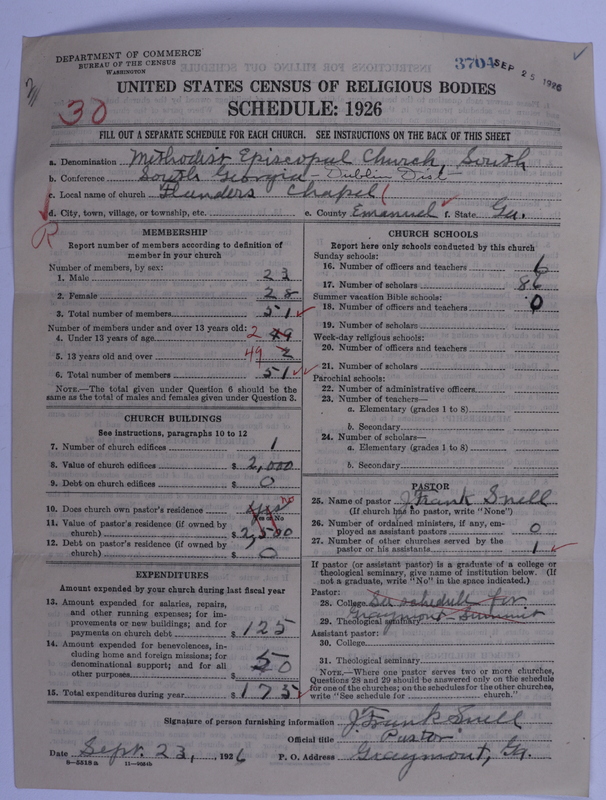 DEPARTMENT OF COMMERCE
BUREAU OF THE CENSUS
WASHINGTON
3704
SEP 25 1926
30
UNITED STATES CENSUS OF RELIGIOUS BODIES
SCHEDULE: 1926
FILL OUT A SEPARATE SCHEDULE FOR EACH CHURCH. SEE INSTRUCTIONS ON THE BACK OF THIS SHEET
a. Denomination Methodist Episcopal Church, South
b. Conference South Georgia - Dublin Dist -
c. Local name of church Flanders Chapel
d. City, town, village, or township, etc. e. County Emanuel f. State Ga.
R
MEMBERSHIP
Report number of members according to definition of
member in your church
Number of members, by sex:
1. Male 23
2. Female 28
3. Total number of members 51
Number of members under and over 13 years old:
4. Under 13 years of age 2 49
5. 13 years old and over 49 2
6. Total number of members 51
NOTE.—The total given under Question 6 should be
the same as the total of males and females given under Question 3.
CHURCH BUILDINGS
See instructions, paragraphs 10 to 12
7. Number of church edifices 1
8. Value of church edifices $ 2,000
9. Debt on church edifices $ 0
10. Does church own pastor's residence yes no
Yes or No
11. Value of pastor's residence (if owned by
church) $ 2,500
12. Debt on pastor's residence (if owned by
church) $ 0
EXPENDITURES
Amount expended by your church during last fiscal year
13. Amount expended for salaries, repairs,
and other running expenses; for im-
provements or new buildings; and for
payments on church debt $ 125
14. Amount expended for benevolences, in-
cluding home and foreign missions; for
denominational support; and for all
other purposes $ 50
15. Total expenditures during year $ 175
CHURCH SCHOOLS
Report here only schools conducted by this church
Sunday schools:
16. Number of officers and teachers 6
17. Number of scholars 86
Summer vacation Bible schools:
18. Number of officers and teachers 0
19. Number of scholars
Week-day religious schools:
20. Number of officers and teachers
21. Number of scholars
Parochial schools:
22. Number of administrative officers
23. Number of teachers—
a. Elementary (grades 1 to 8)
b. Secondary
24. Number of scholars—
a. Elementary (grades 1 to 8)
b. Secondary
PASTOR
25. Name of pastor J. Frank Snell
(If church has no pastor, write "None")
26. Number of ordained ministers, if any, em-
ployed as assistant pastors 0
27. Number of other churches served by the
pastor or his assistants 1
If pastor (or assistant pastor) is a graduate of a college or
theological seminary, give name of institution below. (If
not a graduate, write "No" in the space indicated.)
Pastor:
28. College See schedule for
29. Theological seminary Graymont-Summit
Assistant pastor:
30. College
31. Theological seminary
NOTE.—Where one pastor serves two or more churches,
Questions 28 and 29 should be answered only on the schedule
for one of the churches; on the schedules for the other churches,
write "See schedule for church."
Signature of person furnishing information J. Frank Snell
Official title Pastor
Date Sept. 23, 1926 P. O. Address Graymont, Ga.